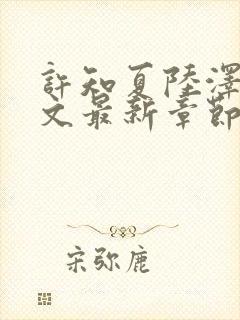 許知夏陸澤
文最新章節
宋弥鹿